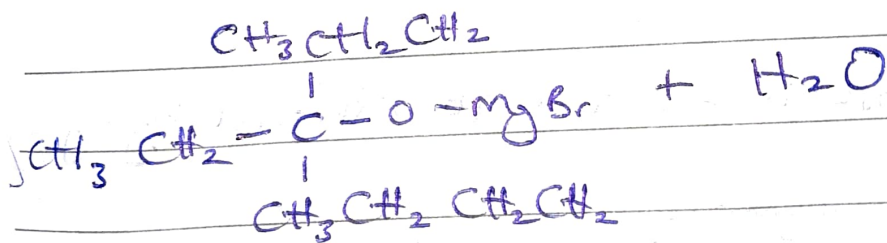 CH₃CH₂CH₂
|
CH₃ CH₂ - C - O - Mg Br + H₂O
|
CH₃ CH₂ CH₂CH₂